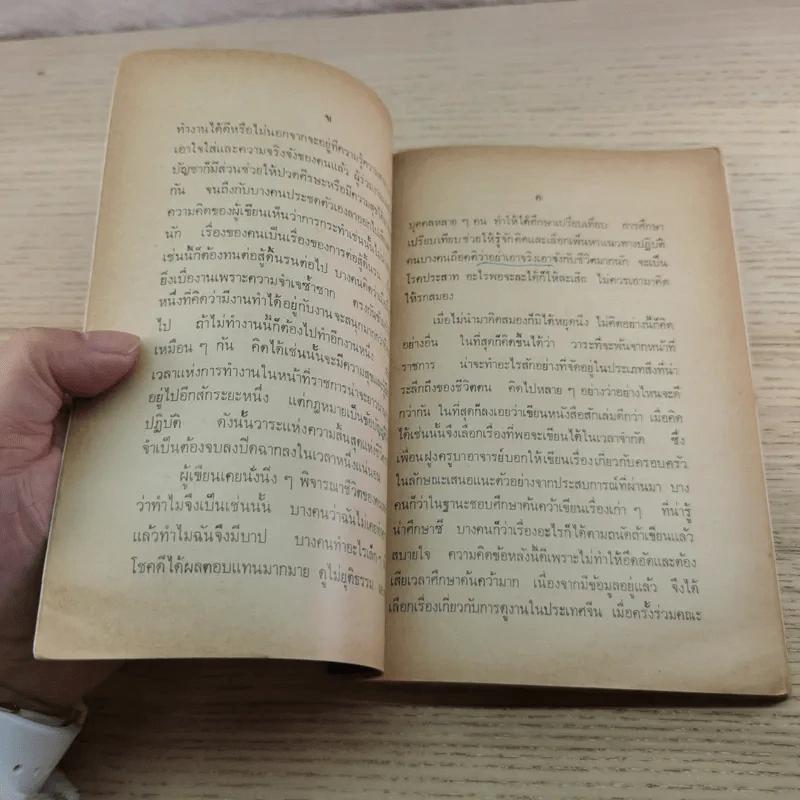 ข
ทำงานได้ดีหรือไม่นอกจากจะอยู่ที่ความรู้ความ
เอาใจใส่และความจริงจังของคนแล้ว ผู้ร่วม
บัญชาก็มีส่วนช่วยให้ปวดศีรษะหรือมีความสุข
กัน จนถึงกับบางคนประชดตัวเองลาออกไป
ความคิดของผู้เขียนเห็นว่าการกระทำเช่นนั้น
นัก เรื่องของคนเป็นเรื่องของการต่อสู้ดิ้นรน
เช่นนี้ก็ต้องทนต่อสู้ดิ้นรนต่อไป บางคนคิดว่า
ยิ่งเบื่องานเพราะความจำเจซ้ำซาก ตรงกันข้าม
หนึ่งที่คิดว่ามีงานทำได้อยู่กับงานจะสนุกมากกว่า
ไป ถ้าไม่ทำงานนี้ก็ต้องไปทำอีกงานหนึ่ง
เหมือน ๆ กัน คิดได้เช่นนั้นจะมีความสุข
เวลาแห่งการทำงานในหน้าที่ราชการน่าจะยาว
อยู่ไปอีกสักระยะหนึ่ง แต่กฎหมายเป็นข้อบัญญัติ
ปฏิบัติ ดังนั้นวาระแห่งความสิ้นสุดแห่งชีวิต
จำเป็นต้องจบลงปิดฉากลงในเวลาหนึ่งแน่นอน
ผู้เขียนเคยนั่งนิ่ง ๆ พิจารณาชีวิตของ
ว่าทำไมจึงเป็นเช่นนั้น บางคนว่าฉันไม่เคย
แล้วทำไมฉันจึงมีบาป บางคนทำอะไรเล็ก ๆ
โชคดีได้ผลตอบแทนมากมาย ดูไม่ยุติธรรม
ค
บุคคลหลาย ๆ คน ทำให้ได้ศึกษาเปรียบเทียบ การศึกษา
เปรียบเทียบช่วยให้รู้จักคิดและเลือกเฟ้นหาแนวทางปฏิบัติ
คนบางคนถือคติว่าอย่าเอาจริงเอาจังกับชีวิตมากนัก จะเป็น
โรคประสาท อะไรพอจะละได้ก็ให้ละเสีย ไม่ควรเอามาคิด
ให้รกสมอง
เมื่อไม่นำมาคิดสมองก็มิได้หยุดนิ่ง ไม่คิดอย่างนี้ก็คิด
อย่างอื่น ในที่สุดก็คิดขึ้นได้ว่า วาระที่จะพ้นจากหน้าที่
ราชการ น่าจะทำอะไรสักอย่างที่จัดอยู่ในประเภทสิ่งที่น่า
ระลึกถึงของชีวิตตน คิดไปหลาย ๆ อย่างว่าอย่างไหนจะดี
กว่ากัน ในที่สุดก็ลงเอยว่าเขียนหนังสือสักเล่มดีกว่า เมื่อคิด
ได้เช่นนั้นจึงเลือกเรื่องที่พอจะเขียนได้ในเวลาจำกัด ซึ่ง
เพื่อนฝูงครูบาอาจารย์บอกให้เขียนเรื่องเกี่ยวกับครอบครัว
ในลักษณะเสนอแนะตัวอย่างจากประสบการณ์ที่ผ่านมา บาง
คนก็ว่าในฐานะชอบศึกษาค้นคว้าเขียนเรื่องเก่า ๆ ที่น่ารู้
น่าศึกษาซี บางคนก็ว่าเรื่องอะไรก็ได้ตามถนัดถ้าเขียนแล้ว
สบายใจ ความคิดข้อหลังนี้ดีเพราะไม่ทำให้อึดอัดและต้อง
เสียเวลาศึกษาค้นคว้ามาก เนื่องจากมีข้อมูลอยู่แล้ว จึงได้
เลือกเรื่องเกี่ยวกับการดูงานในประเทศจีน เมื่อครั้งร่วมคณะ